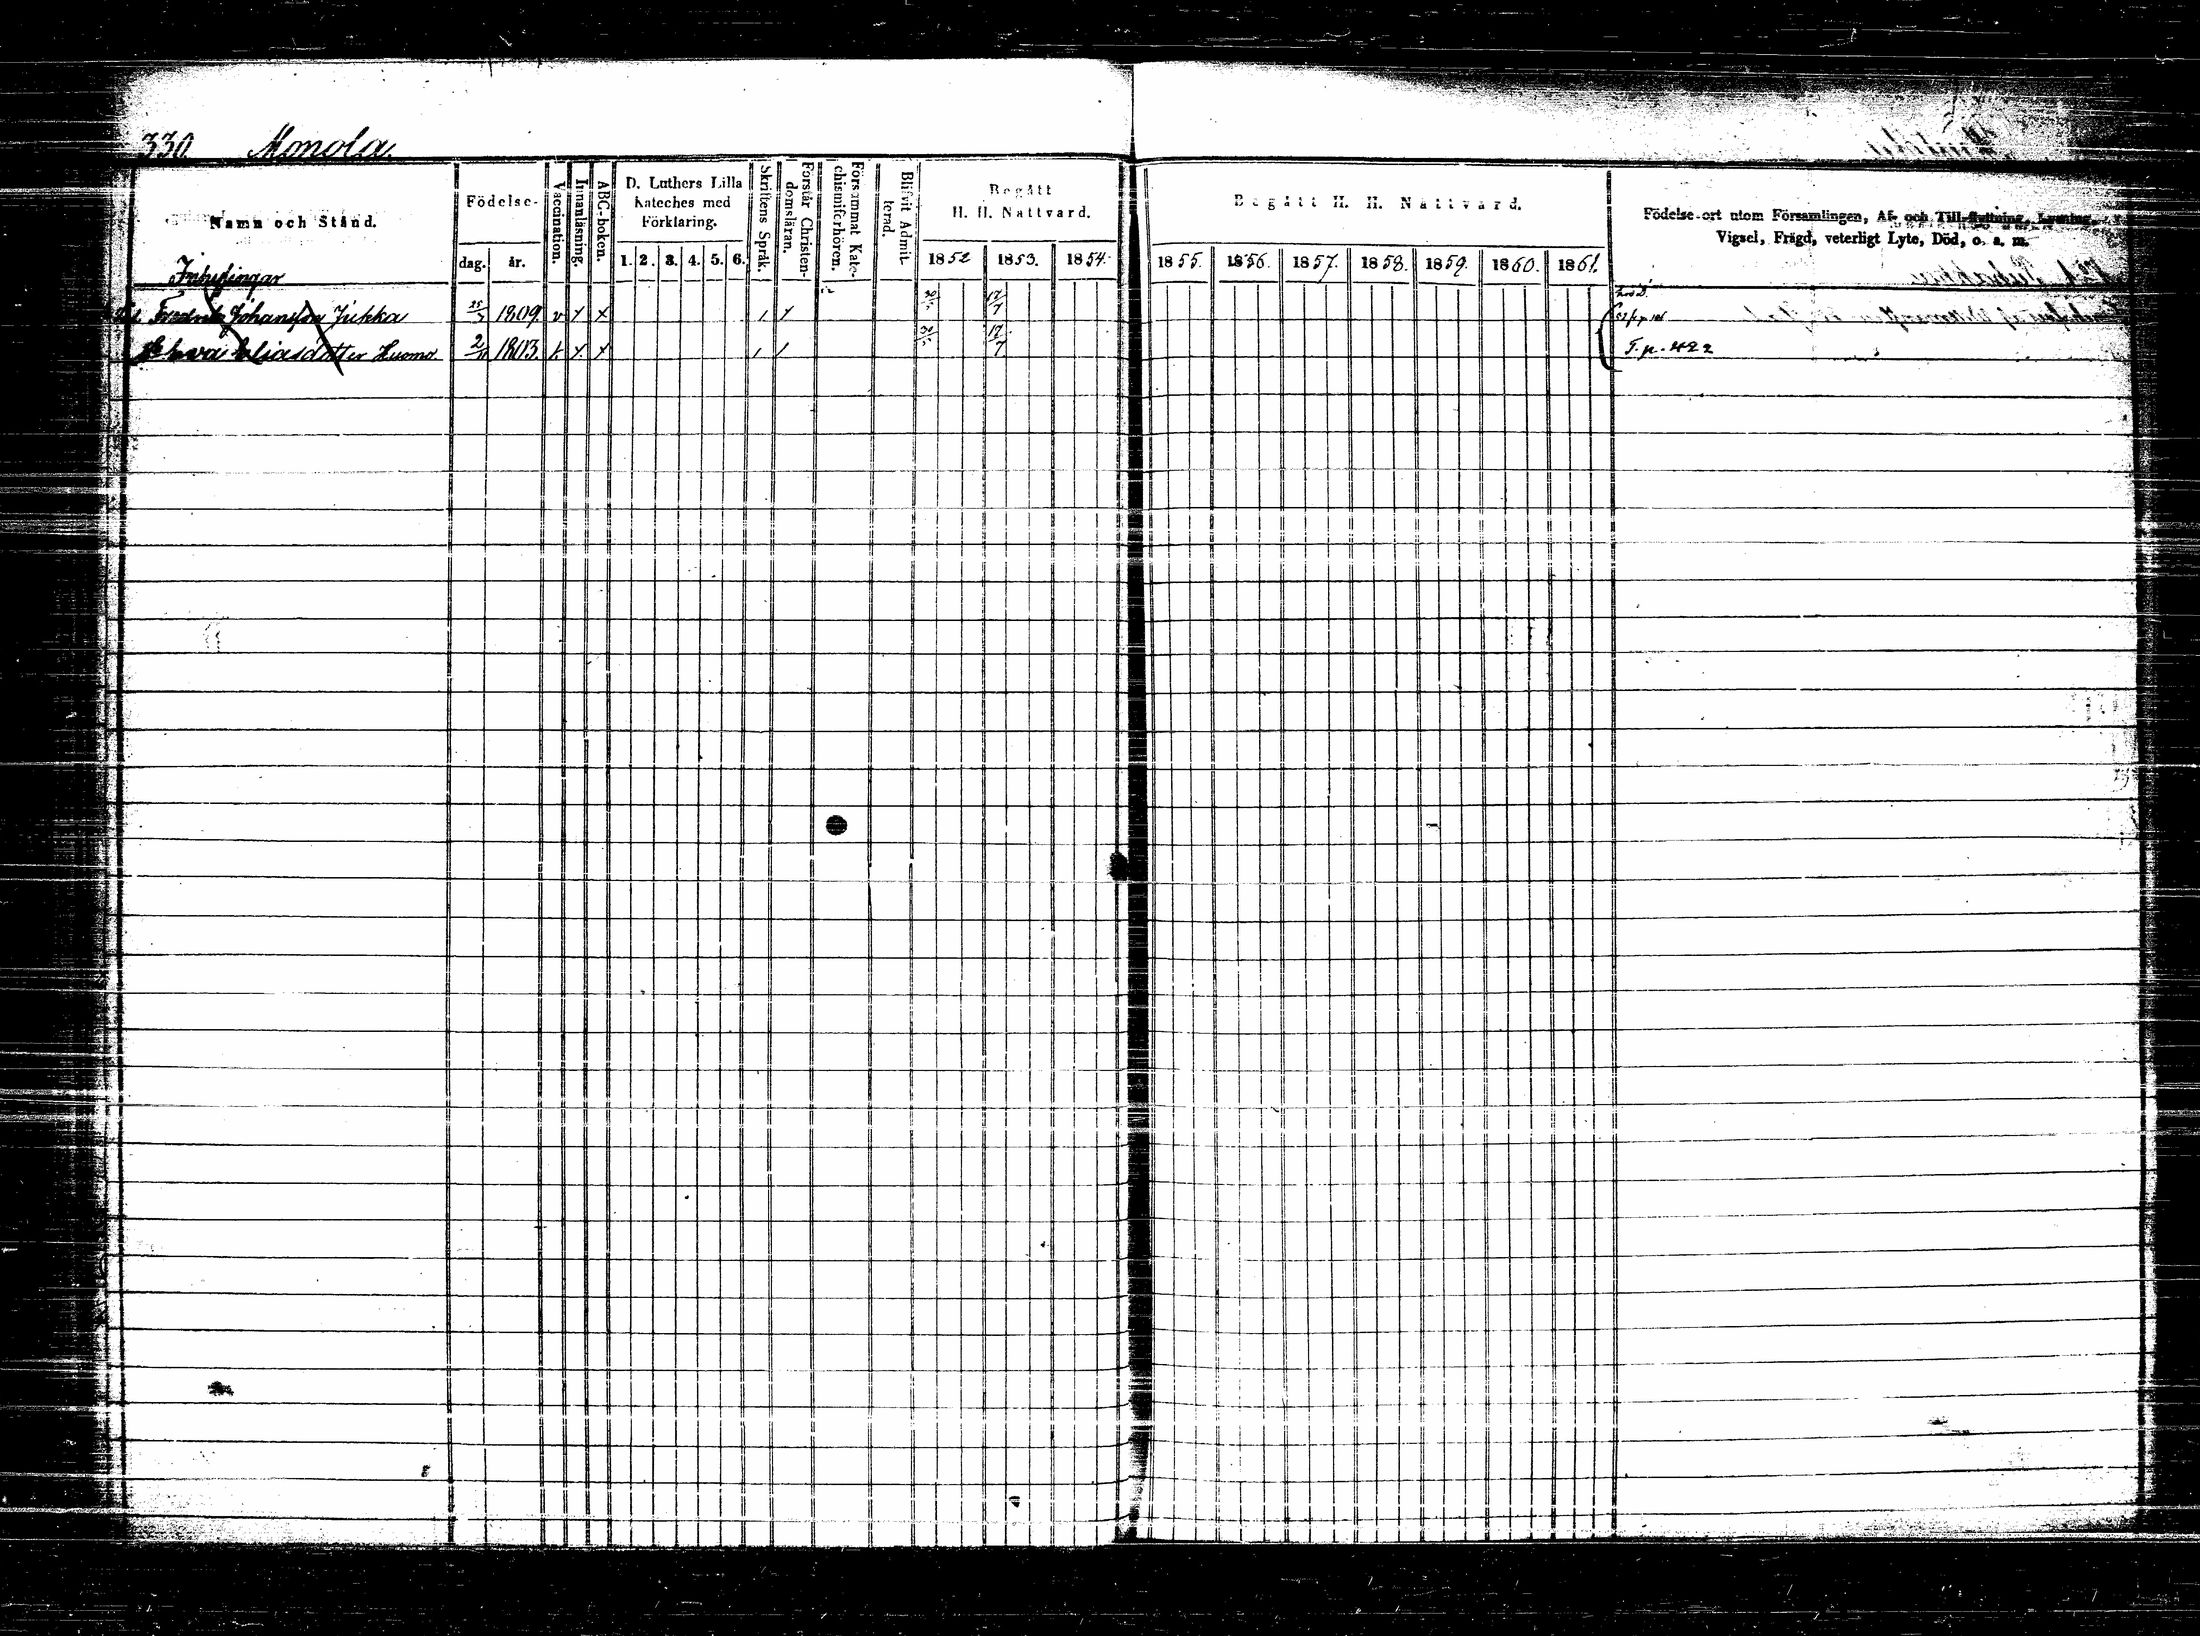 330. Monola.
Namn och Stånd.
Födelse-
dag. år.
Vaccination.
Innanläsning.
ABC-boken.
D. Luthers Lilla
Kateches med
Förklaring.
1. 2. 3. 4. 5. 6.
Skriftens Språk.
Förstår Christen-
domsläran.
Försummat Kate-
chismiförhören.
Blifvit Admit-
terad.
Begått
H. H. Nattvard.
1852 1853. 1854.
Begått H. H. Nattvard.
1855. 1856. 1857. 1858. 1859. 1860. 1861.
Födelse-ort utom Församlingen, Af- och Till-flyttning, Lysning,
Vigsel, Frägd, veterligt Lyte, Död, o. s. m.
Inhysingar
Fredrik Johansson Jukka 25/3 1809. v x x 30/5 17/7
H. Eva Eliasdotter Huomo 2/11 1803. v x x 30/5 17/7
T. p. 422